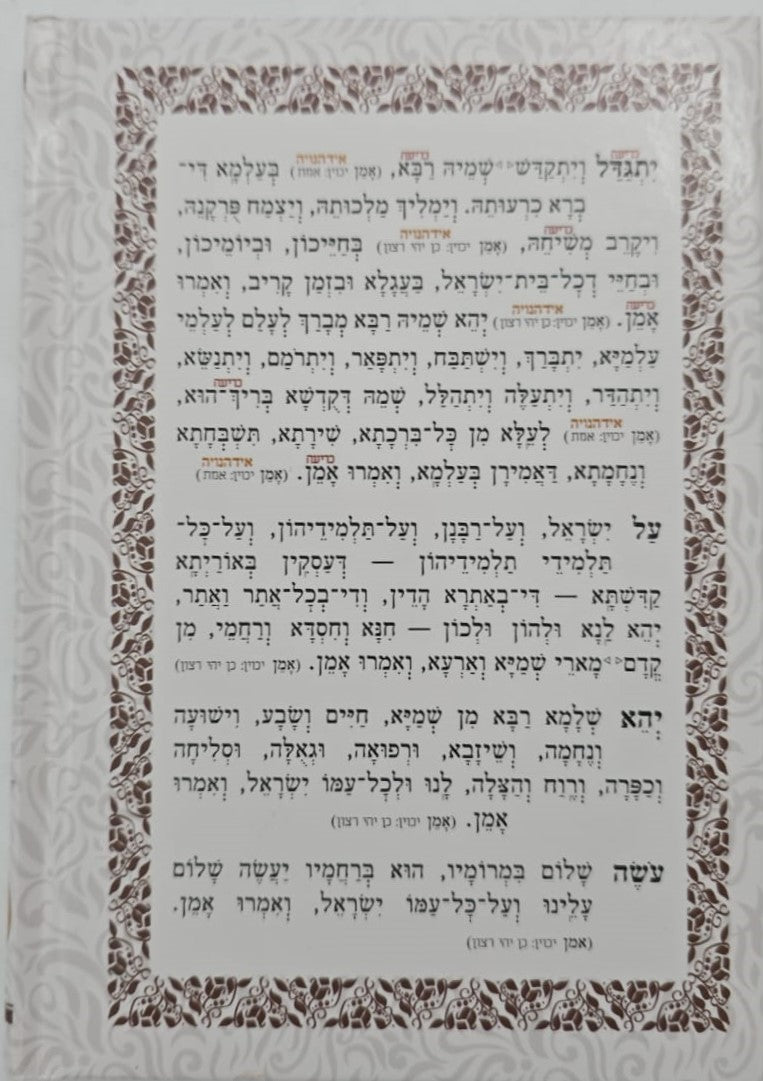 יִתְגַּדַּל וְיִתְקַדַּשׁ שְׁמֵיהּ רַבָּא, (אָמֵן יכוין: אמת) בְּעָלְמָא דִּי־
בְרָא כִרְעוּתֵהּ. וְיַמְלִיךְ מַלְכוּתֵהּ, וְיַצְמַח פֻּרְקָנֵהּ,
וִיקָרֵב מְשִׁיחֵהּ, (אָמֵן יכוין: כן יהי רצון) בְּחַיֵּיכוֹן, וּבְיוֹמֵיכוֹן,
וּבְחַיֵּי דְכָל־בֵּית־יִשְׂרָאֵל, בַּעֲגָלָא וּבִזְמַן קָרִיב, וְאִמְרוּ
אָמֵן. (אָמֵן יכוין: כן יהי רצון) יְהֵא שְׁמֵיהּ רַבָּא מְבָרַךְ לְעָלַם לְעָלְמֵי
עָלְמַיָּא, יִתְבָּרַךְ, וְיִשְׁתַּבַּח, וְיִתְפָּאַר, וְיִתְרֹמַם, וְיִתְנַשֵּׂא,
וְיִתְהַדַּר, וְיִתְעַלֶּה וְיִתְהַלַּל, שְׁמֵהּ דְּקֻדְשָׁא בְּרִיךְ־הוּא,
(אָמֵן יכוין: אמת) לְעֵלָּא מִן כָּל־בִּרְכָתָא, שִׁירָתָא, תִּשְׁבְּחָתָא
וְנֶחָמָתָא, דַּאֲמִירָן בְּעָלְמָא, וְאִמְרוּ אָמֵן. (אָמֵן יכוין: אמת)
עַל יִשְׂרָאֵל, וְעַל־רַבָּנָן, וְעַל־תַּלְמִידֵיהוֹן, וְעַל־כָּל־
תַּלְמִידֵי תַלְמִידֵיהוֹן — דְּעָסְקִין בְּאוֹרַיְתָא
קַדִּשְׁתָּא — דִּי־בְאַתְרָא הָדֵין, וְדִי־בְכָל־אֲתַר וַאֲתַר,
יְהֵא לָנָא וּלְהוֹן וּלְכוֹן — חִנָּא וְחִסְדָּא וְרַחֲמֵי, מִן
קֳדָם מָארֵי שְׁמַיָּא וְאַרְעָא, וְאִמְרוּ אָמֵן. (אָמֵן יכוין: כן יהי רצון)
יְהֵא שְׁלָמָא רַבָּא מִן שְׁמַיָּא, חַיִּים וְשָׂבָע, וִישׁוּעָה
וְנֶחָמָה, וְשֵׁיזָבָא, וּרְפוּאָה, וּגְאֻלָּה, וּסְלִיחָה
וְכַפָּרָה, וְרֶוַח וְהַצָּלָה, לָנוּ וּלְכָל־עַמּוֹ יִשְׂרָאֵל, וְאִמְרוּ
אָמֵן. (אָמֵן יכוין: כן יהי רצון)
עֹשֶׂה שָׁלוֹם בִּמְרוֹמָיו, הוּא בְּרַחֲמָיו יַעֲשֶׂה שָׁלוֹם
עָלֵינוּ וְעַל־כָּל־עַמּוֹ יִשְׂרָאֵל, וְאִמְרוּ אָמֵן.
(אמן יכוין: כן יהי רצון)